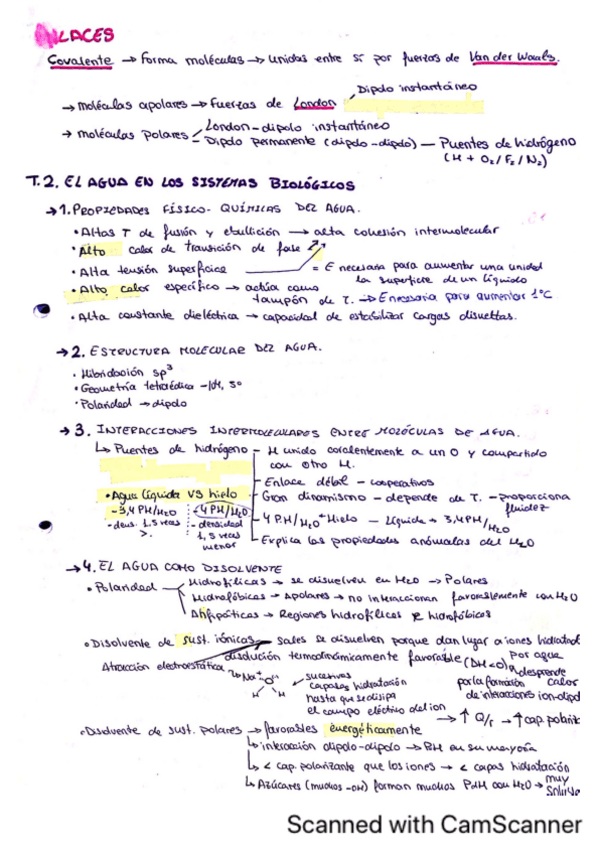 ENLACES
Covalente → Forma moléculas → unidas entre sí por fuerzas de Van der Waals.
Dipolo instantáneo
→ moléculas apolares → Fuerzas de London
→ moléculas polares London - dipolo instantáneo
- Dipolo permanente (dipolo-dipolo) — Puentes de hidrógeno
(H + O2/F2/N2)
T.2. EL AGUA EN LOS SISTEMAS BIOLÓGICOS
→ 1. PROPIEDADES FÍSICO-QUÍMICAS DEL AGUA.
• Altas T de fusión y ebullición → alta cohesión intermolecular
• Alto calor de transición de fase
• Alta tensión superficie = E necesaria para aumentar una unidad
la superficie de un líquido
• Alto calor específico → actúa como
tampón de T. → E necesaria para aumentar 1°C
• Alta constante dieléctrica → capacidad de estabilizar cargas disueltas.
→ 2. ESTRUCTURA MOLECULAR DEL AGUA.
• Hibridación sp3
• Geometría tetraédica - 104,5°
• Polaridad → dipolo
→ 3. INTERACCIONES INTERMOLECULARES ENTRE MOLÉCULAS DE AGUA.
↳ Puentes de hidrógeno - H unido covalentemente a un O y compartido
con otro H.
- Enlace débil - cooperativos
• Agua líquida VS hielo - Gran dinamismo - depende de T. - proporciona
fluidez
- 3,4 PH/H2O <4 PH/H2O - 4 P.H/H2O → Hielo - Líquida → 3,4PH/H2O
- deus. 1,5 veces >. - densidad 1,5 veces menor
- Explica las propiedades anómalas del H2O
→ 4. EL AGUA COMO DISOLVENTE
• Polaridad Hidrofílicas → se disuelven en H2O → Polares
Hidrofóbicas → Apolares → no interaccionan favorablemente con H2O
Anfipáticas → Regiones hidrofílicas e hidrofóbicas
• Disolvente de sust. iónicas - sales se disuelven porque dan lugar a iones hidratad
por agua
Atracción electroestática disolución termodinámicamente favorable (ΔH<0)
se desprende
Na+ O H H sucesivas por la formación calor
capas hidratación de interacciones ion-dipol
hasta que se disipa
el campo eléctrico del ion → ↑ Q/r → ↑ cap. polariz
• Disolvente de sust. polares → favorables energéticamente
↳ interacción dipolo-dipolo → PH en su mayoría
↳ < cap. polarizante que los iones → < capas hidratación
↳ Azúcares (muchos -OH) forman muchos PdH con H2O → muy
soluble
Scanned with CamScanner